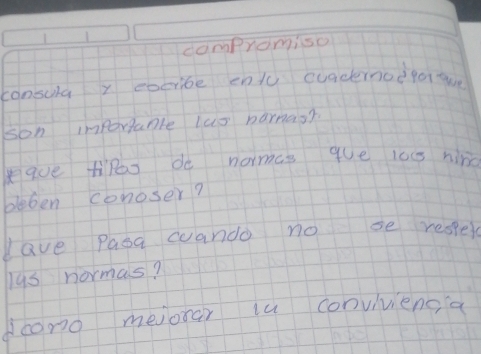 comPromiso
consula y escribe en tu cuadernod por que
son importante las normas?
que tipos de normas que los niño
deben conoser?
que Pasa cuando no se respet
las normas?
como mejorar la conviviencia